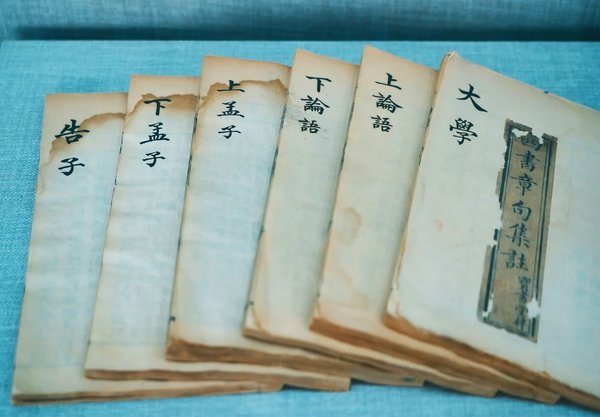 四書章句集註
大學
上論語
下論語
上孟子
下孟子
告子